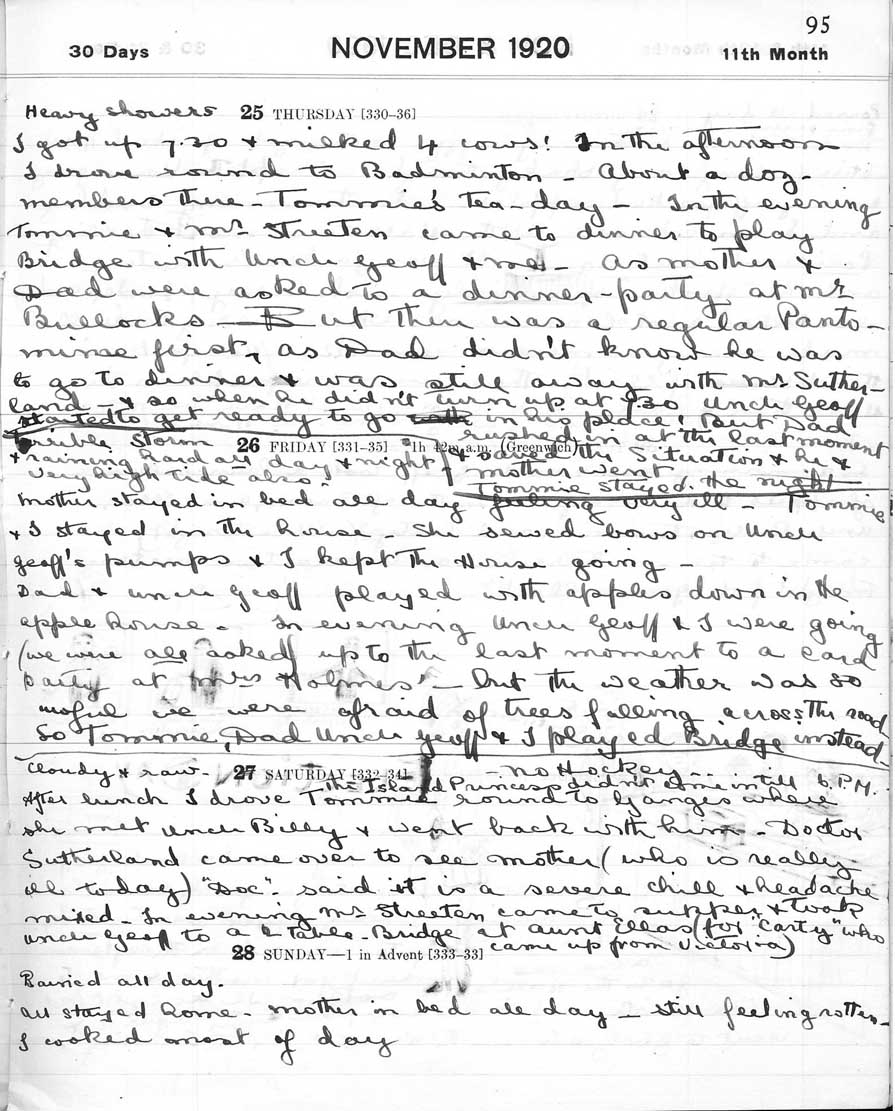 95
30 Days NOVEMBER 1920 11th Month
Heavy showers 25 THURSDAY [330-36]
I got up 7.30 & milked 4 cows! In the afternoon
I drove round to Badminton - About a doz-
members there - Tommie's tea-day - In the evening
Tommie & Mr Streeten came to dinner to play
Bridge with Uncle Geoff & me - As mother &
Dad were asked to a dinner-party at Mr
Bullocks - But there was a regular Panto-
mime first, as Dad didn't know he was
to go to dinner & was still away with Mr Suther-
land - & so when he didn't turn up at 7.30 Uncle Geoff
started to get ready to go in his place! But Dad
rushed in at the last moment
& saved the Situation & he &
mother went
Tommie stayed the night
Terrible Storm 26 FRIDAY [331-35] 1h 42m a.m. (Greenwich)
& raining hard all day & night
Very high Tide also.
Mother stayed in bed all day feeling very ill - Tommie
& I stayed in the house - She sewed bows on Uncle
Geoff's pumps & I kept the House going -
Dad & Uncle Geoff played with apples down in the
apple house - In evening Uncle Geoff & I were going
(we were all asked) up to the last moment to a card
party at Mrs Holmes' - but the weather was so
awful we were afraid of trees falling across the road
So Tommie, Dad Uncle Geoff & I played Bridge instead
Cloudy & raw - 27 SATURDAY [332-34] - no Hockey -
The Island Princess didn't come in till 6 P.M.
After lunch I drove Tommie round to Ganges where
she met Uncle Billy & went back with him - Doctor
Sutherland came over to see mother (who is really
ill today) "Doc". said it is a severe chill & headache
mixed - In evening Mr Streeten came to supper & took
Uncle Geoff to a 2 table - Bridge at Aunt Ellas (for "Carty" who
came up from Victoria)
28 SUNDAY—1 in Advent [333-33]
Rained all day.
All stayed home - mother in bed all day - still feeling rotten -
I cooked most of day